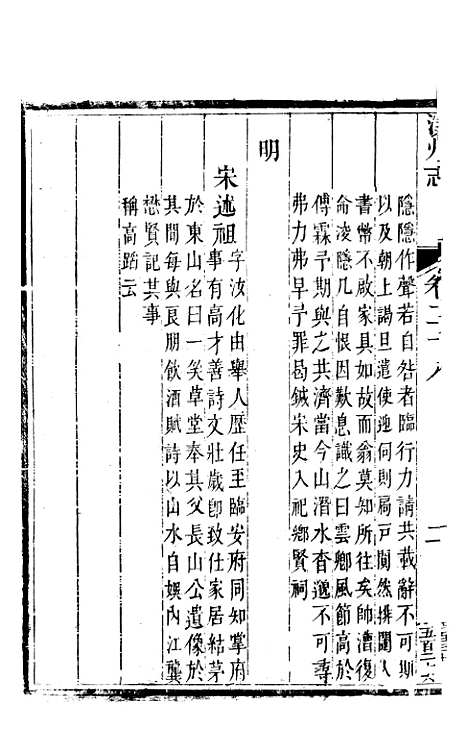 隱隱作聲若自咎者臨行力請共載辭不可斯
以及朝上謁旦遣使迎伺則扃戶闃然排闥入
書幣不啟家具如故而翁莫知所往矣帥漕復
命浚隱几自恨因歎息識之曰雲鄉風節高於
傅霖予期與之共濟當今山潛水杳邈不可尋
弗力弗早予罪曷鍼宋史入祀鄉賢祠
明
宋述祖字汝化由舉人歷任至臨安府同知掌府
事有高才善詩文壯歲卽致仕家居結茅
於東山名曰一笑草堂奉其父長山公遺像於
其間每與良朋飲酒賦詩以山水自娛內江龔
懋賢記其事
稱高蹈云
州志
卷二十八
二